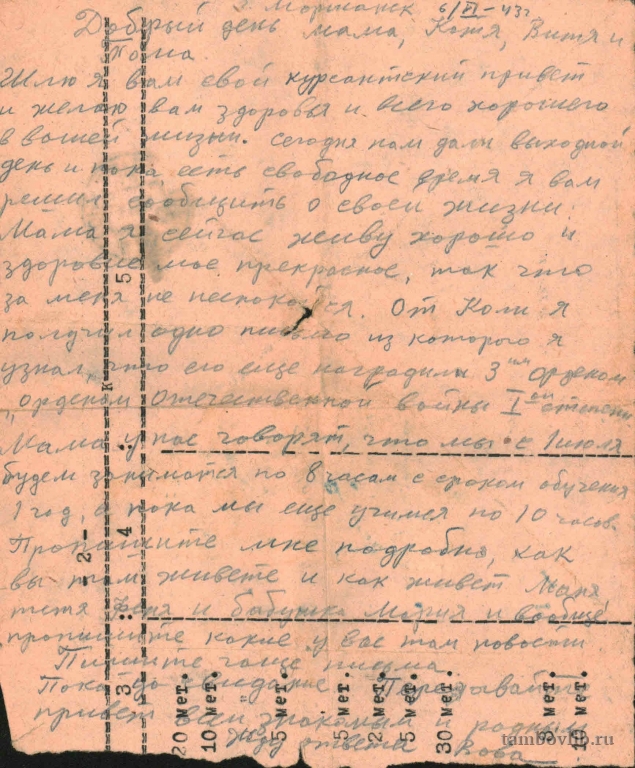 г. Моршанск 6/VI-43г
Добрый день мама, Котя, Витя и
Тома
Шлю я вам свой курсантский привет
и желаю вам здоровья и всего хорошего
в вашей жизни. Сегодня нам дали выходной
день и пока есть свободное время я вам
решил сообщить о своей жизни.
Мама я сейчас живу хорошо и
здоровье мое прекрасное, так что
за меня не
От Коли я
получил одно письмо из которого я
узнал, что его еще наградили 3ым Орденом
"орденом Отечественной войны I ой степени
Мама у нас говорят, что мы с 1 июля
будем заниматся по 8 часам с сроком обучения
1 год, а пока мы еще учимся по 10 часов.
Пропишите мне подробно, как
вы там живете и как живет Маня,
тетя Феня и бабушка Мария и вообще
пропишите какие у вас там новости
Пишите чаще письма.
Пока до свидание Передавайте
привет всем знакомым и родным
Жду ответа Вова
- 2 -
к
:3 4 : 5
20 мет.
10 мет.
5 мет.
5 мет.
2 мет.
5 мет.
30 мет.
3 мет.
10 мет.
tambovlib.ru